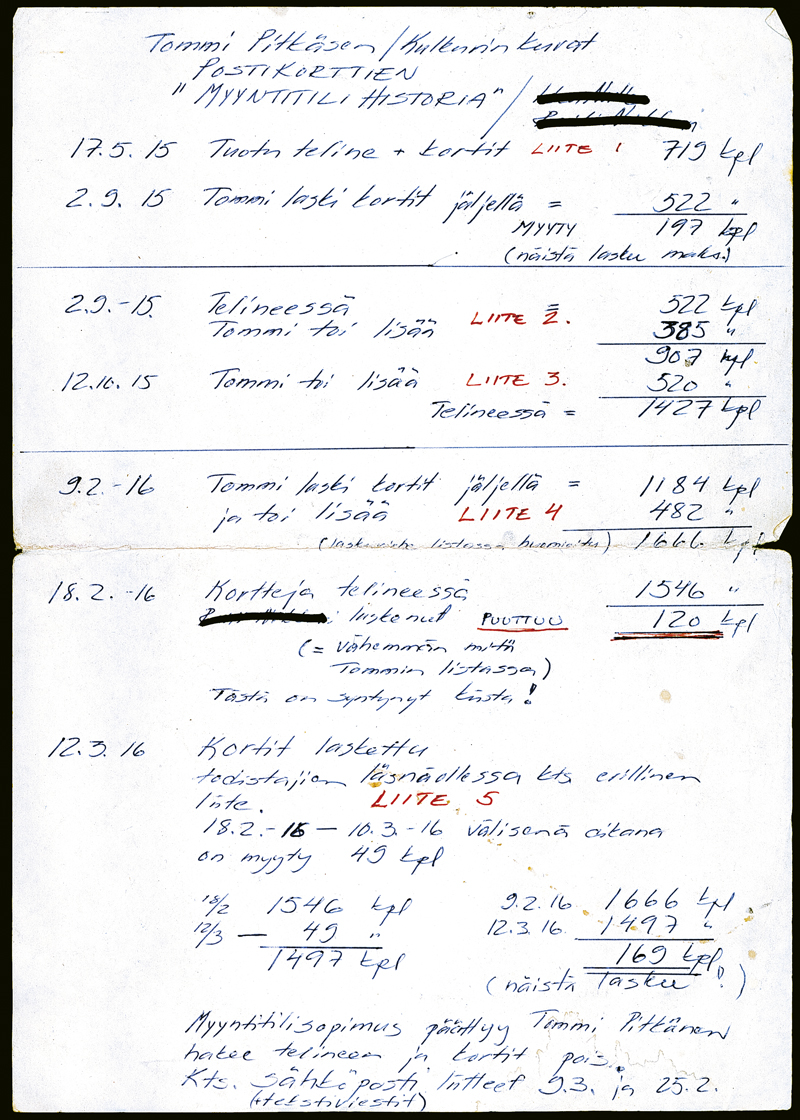 Tommi Pitkäsen / Kulkurin kuvat
POSTIKORTTIEN
"MYYNTITILI HISTORIA" /
17.5.15 Tuotu teline + kortit LIITE 1 719 kpl
2.9.15 Tommi laski kortit jäljellä = 522 "
MYYTY 197 kpl
(näistä lasku maks.)
2.9.-15 Telineessä = 522 kpl
Tommi toi lisää LIITE 2. 385 "
907 kpl
12.10.15 Tommi toi lisää LIITE 3. 520 "
Telineessä = 1427 kpl
9.2.-16 Tommi laski kortit jäljellä = 1184 kpl
ja toi lisää LIITE 4 482 "
(laskuvirhe listassa huomioitu) 1666 kpl
18.2.-16 Kortteja telineessä 1546 "
laskenut PUUTTUU 120 kpl
(= vähemmän mitä
Tommin listassa)
Tästä on syntynyt kiista!
12.3.16 Kortit laskettu
todistajien läsnäollessa kts erillinen
liite. LIITE 5
18.2.-16 — 10.3.-16 välisenä aikana
on myyty 49 kpl
18/2 1546 kpl 9.2.16 1666 kpl
12/3 — 49 " 12.3.16 1497 "
1497 kpl 169 kpl
(näistä lasku!)
Myyntitilisopimus päättyy Tommi Pitkänen
hakee telineen ja kortit pois.
Kts. sähköposti liitteet 9.3. ja 25.2.
(+tekstiviestit)